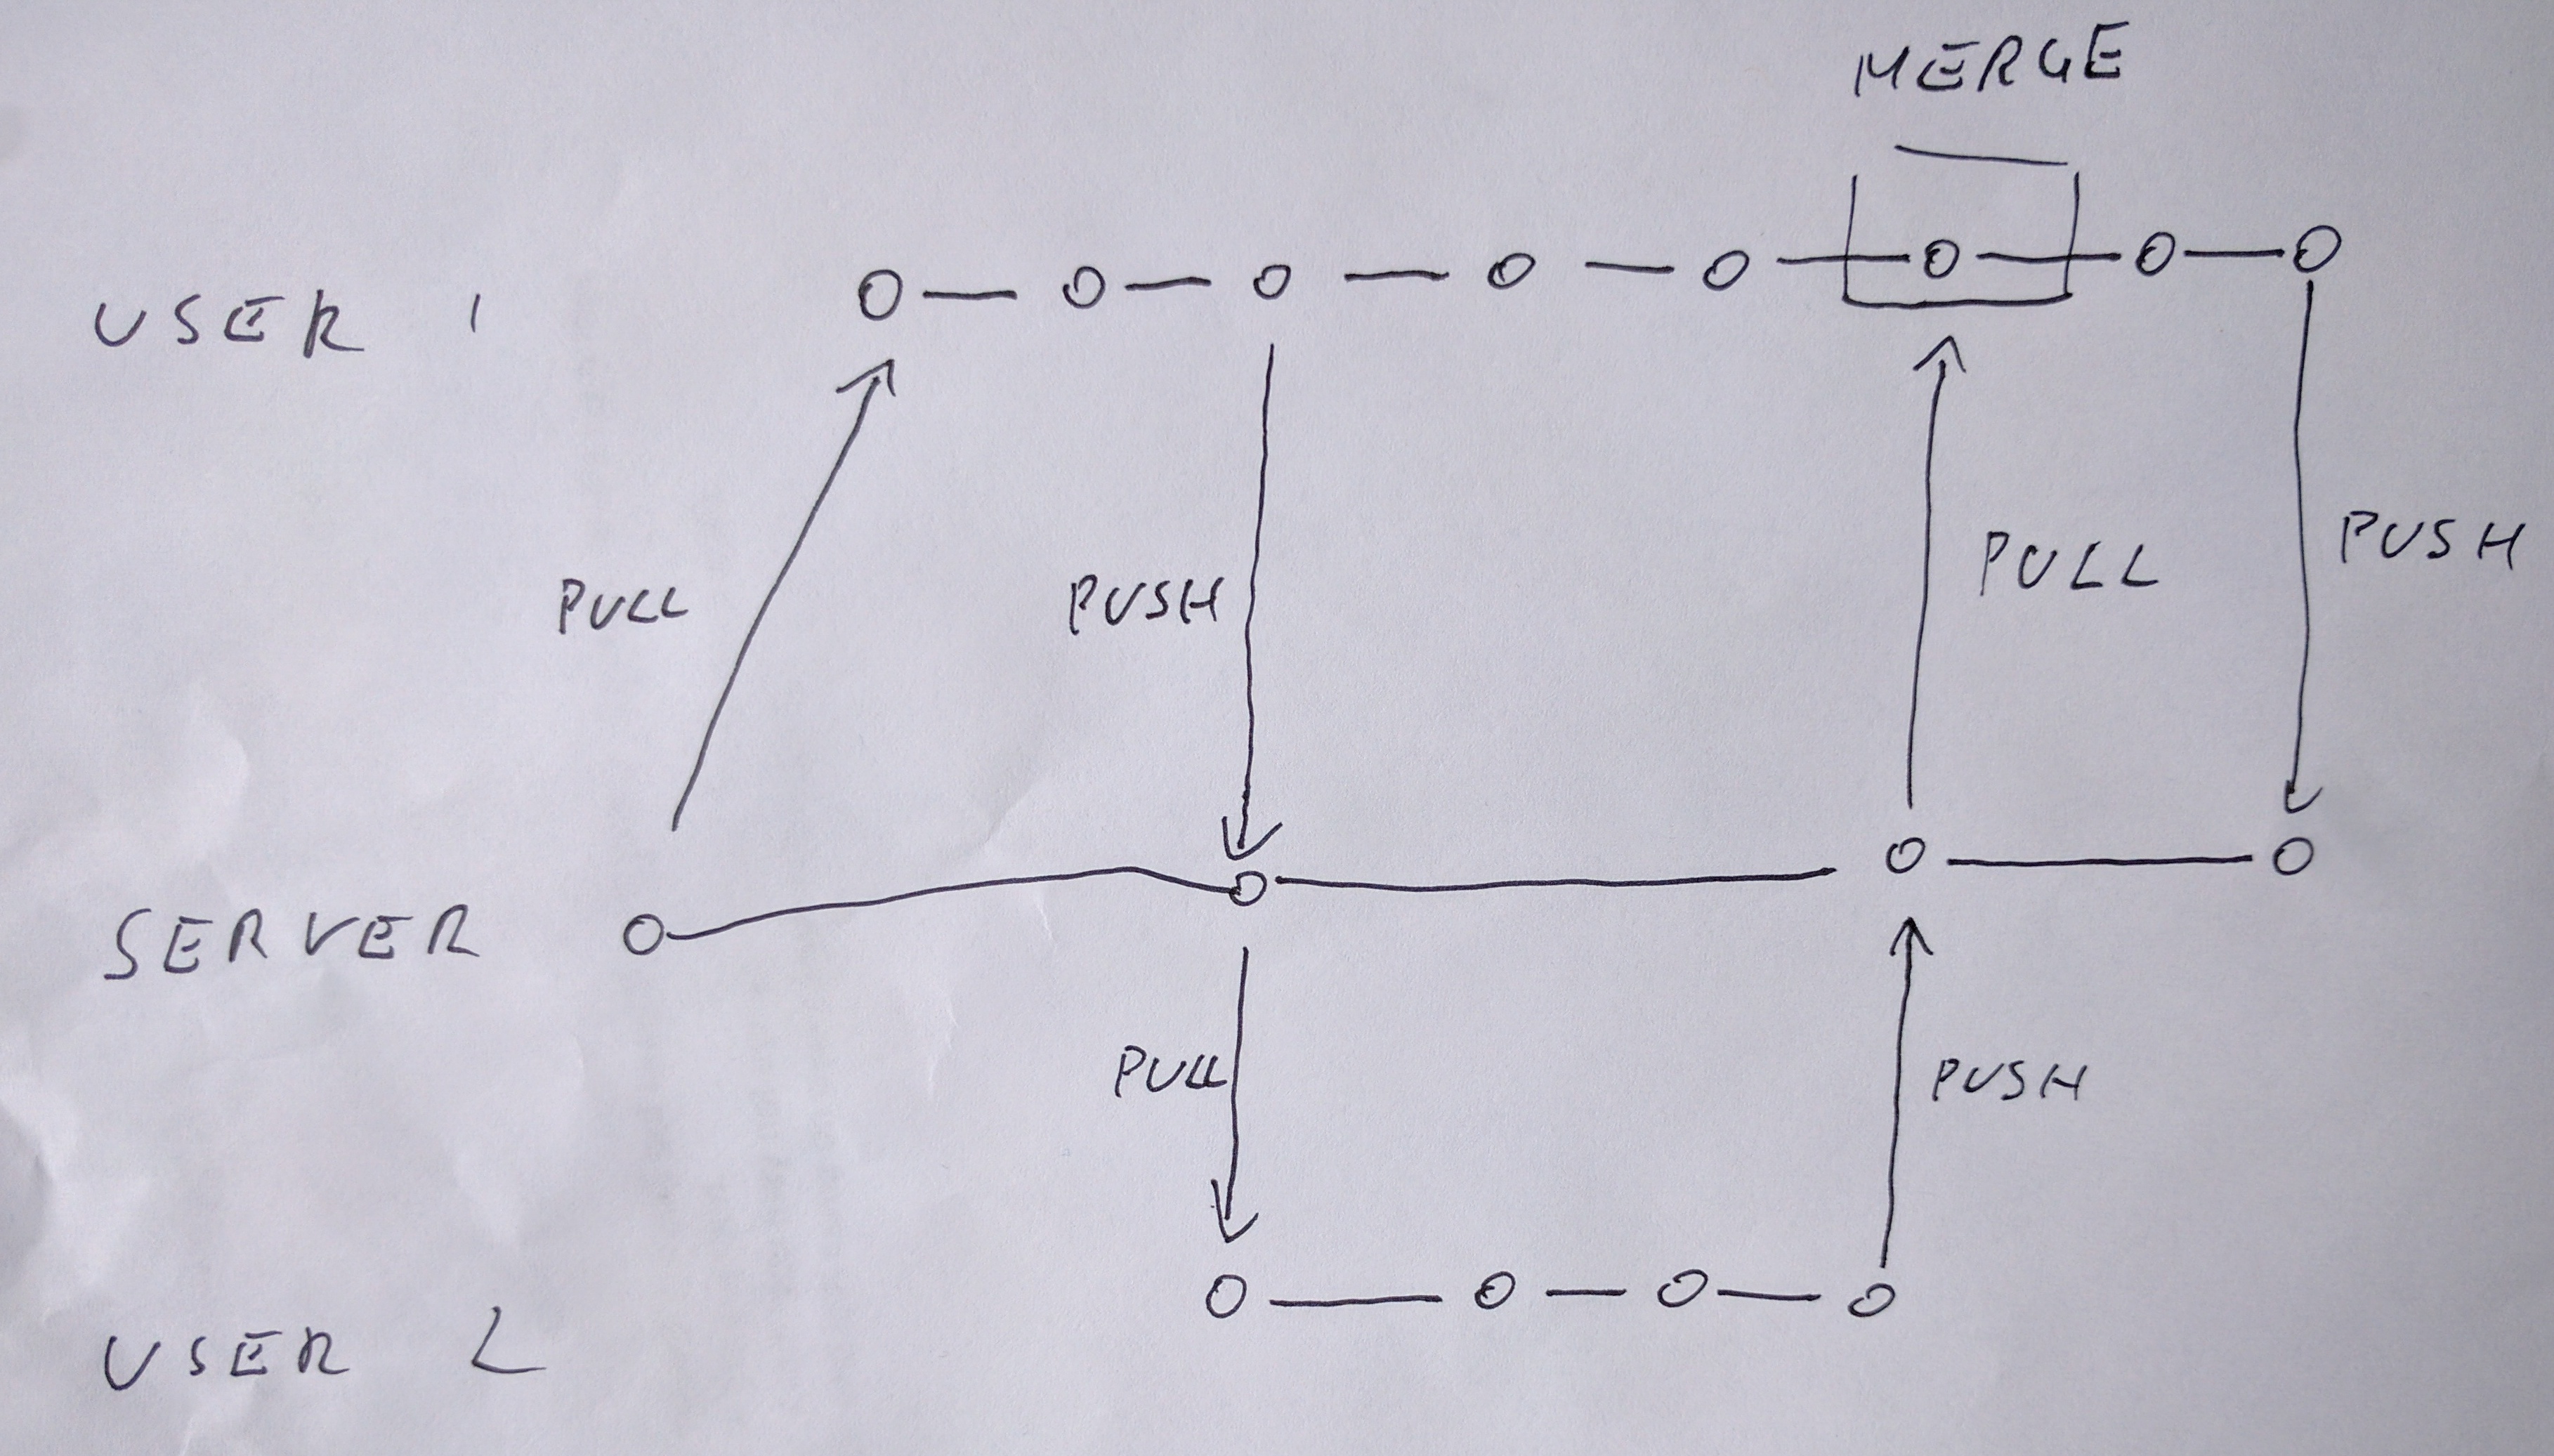 MERGE
USER 1
PULL
PUSH
PULL
PUSH
SERVER
PULL
PUSH
USER 2